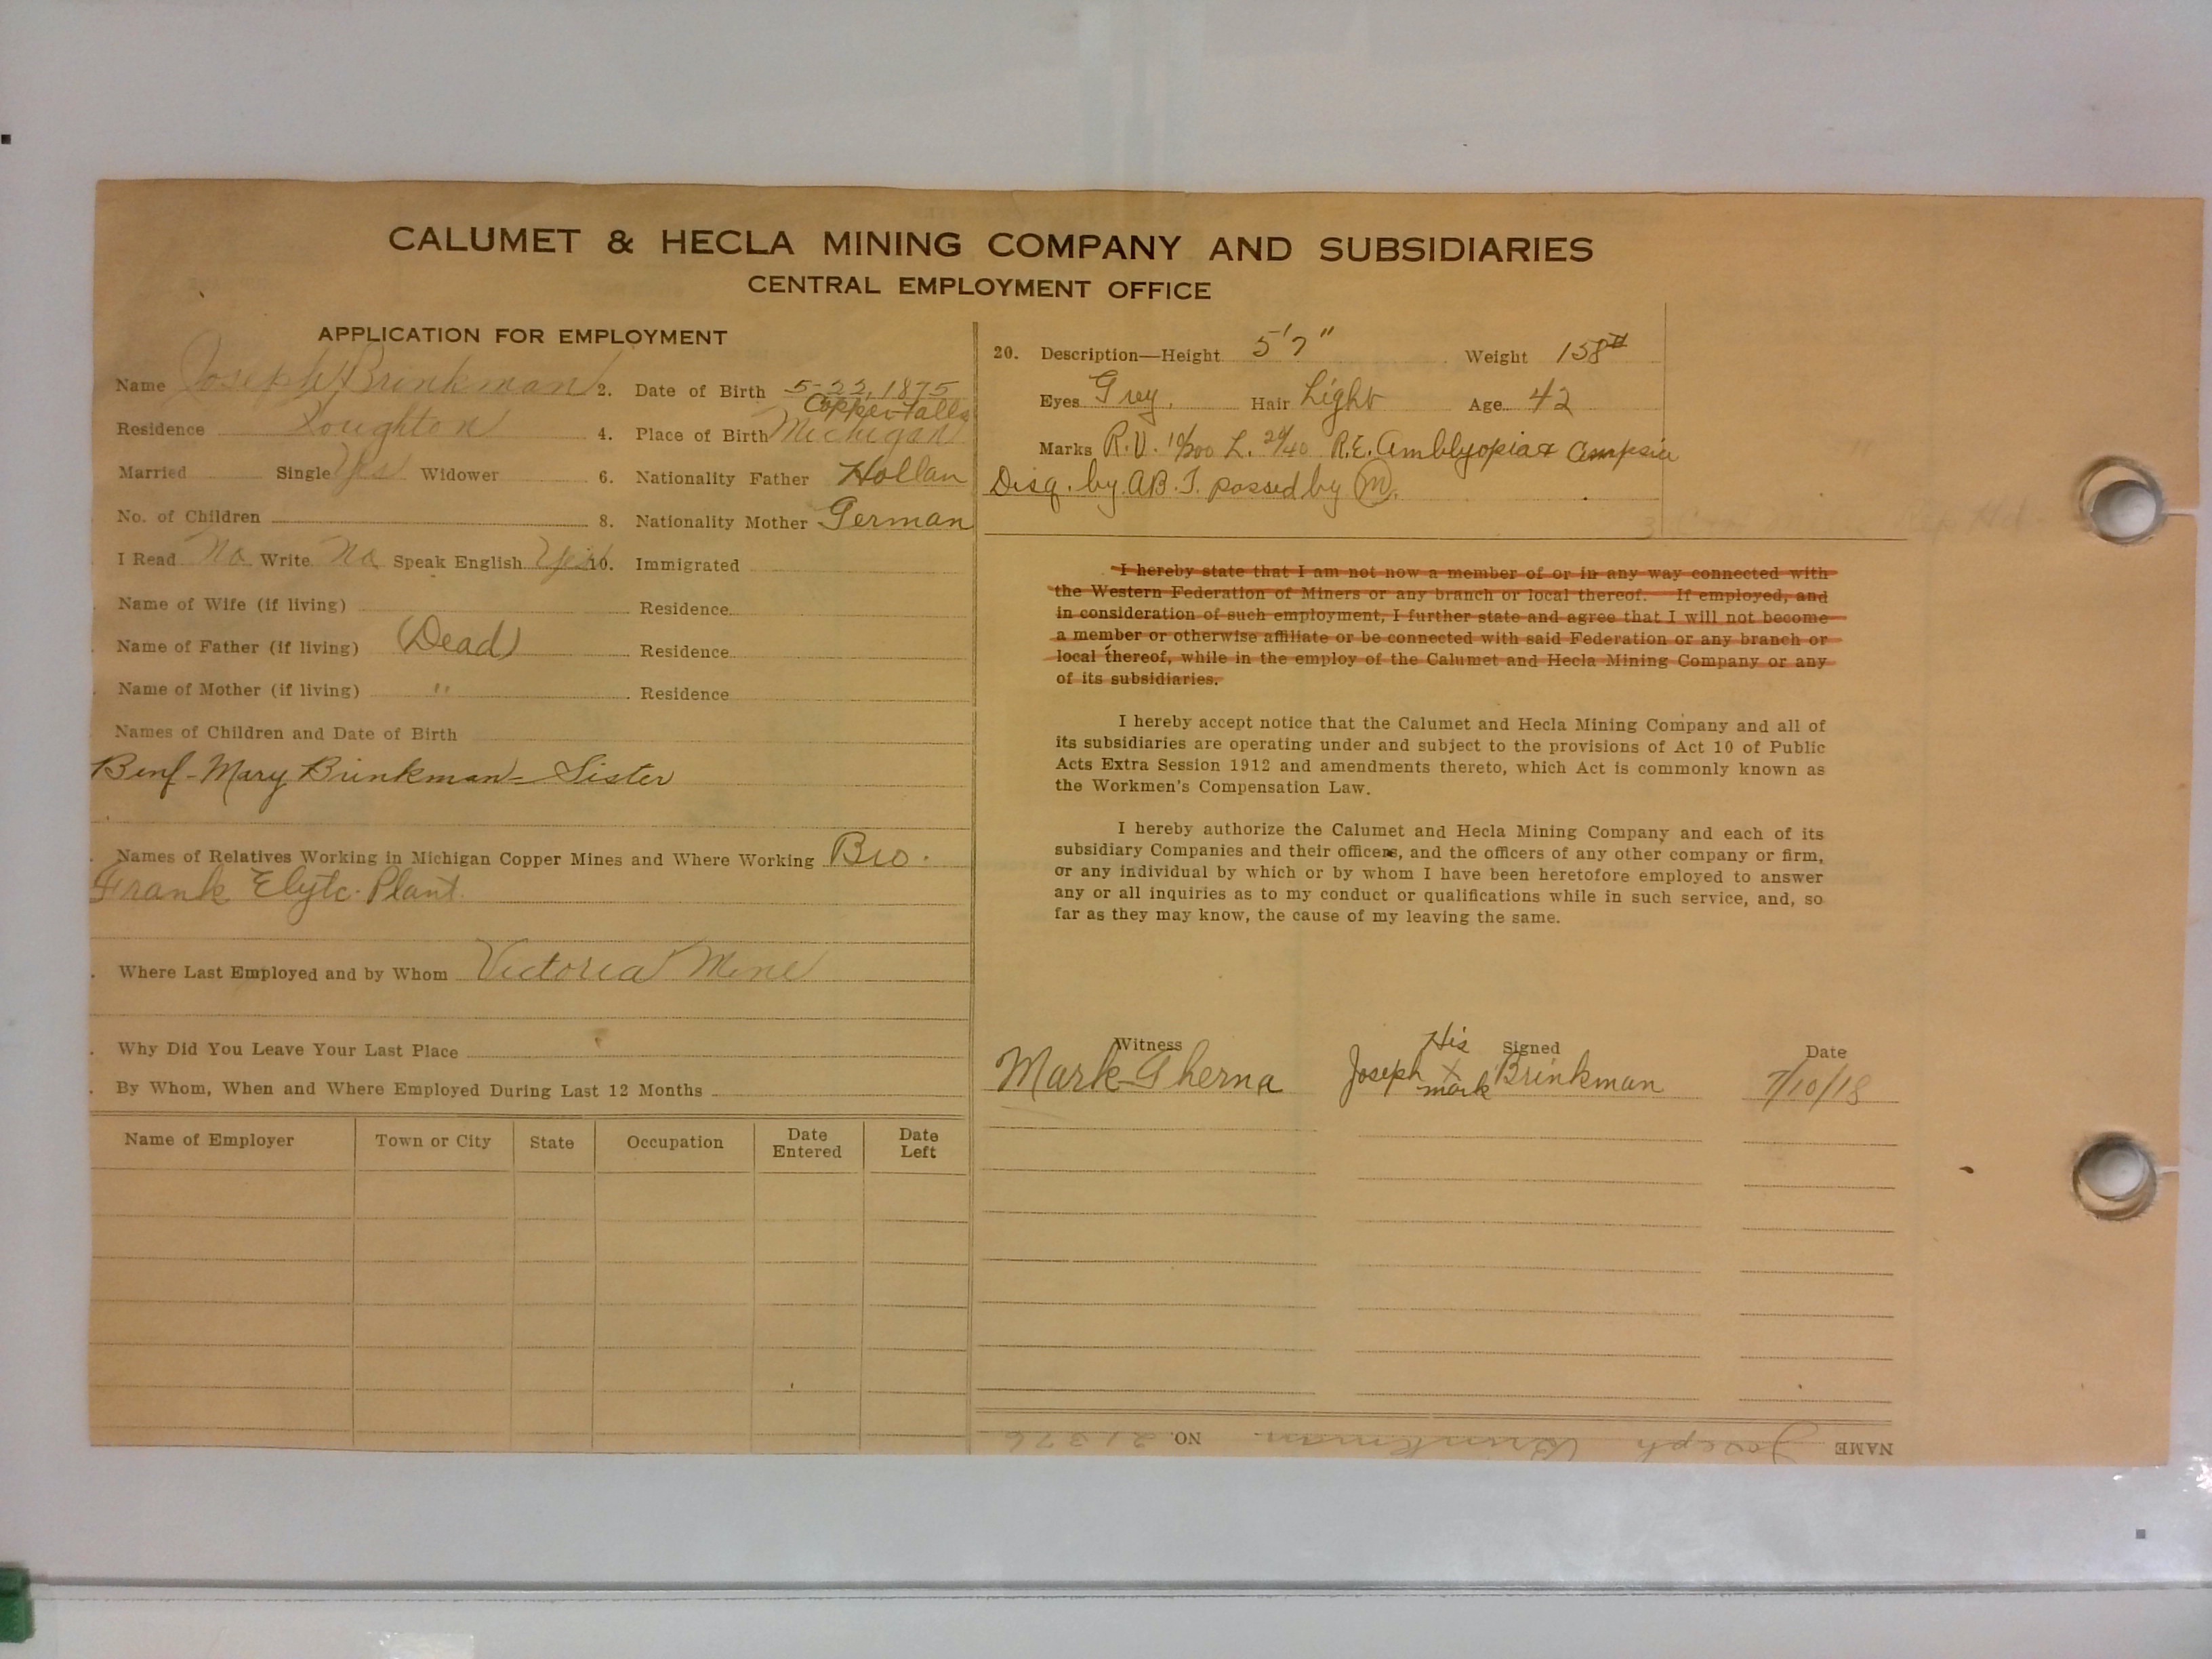 CALUMET & HECLA MINING COMPANY AND SUBSIDIARIES
CENTRAL EMPLOYMENT OFFICE
APPLICATION FOR EMPLOYMENT
Name Joseph Brinkman 2. Date of Birth 5-22, 1875
Copper Falls
Residence Houghton 4. Place of Birth Michigan
Married Single Yes Widower 6. Nationality Father Hollan
No. of Children 8. Nationality Mother German
I Read No Write No Speak English Yes 10. Immigrated
Name of Wife (if living) Residence
Name of Father (if living) (Dead) Residence
Name of Mother (if living) " Residence
Names of Children and Date of Birth
Benf - Mary Brinkman - Sister
Names of Relatives Working in Michigan Copper Mines and Where Working Bro.
Frank Elytc. Plant.
Where Last Employed and by Whom Victoria Mine
Why Did You Leave Your Last Place
By Whom, When and Where Employed During Last 12 Months
Name of Employer Town or City State Occupation Date Entered Date Left
20. Description—Height 5'7" Weight 158#
Eyes Grey. Hair Light Age 42
Marks R.V. 10/200 L. 20/40 R.E. Amblyopia &
Disq. by A.B.F. passed by M.
I hereby state that I am not now a member of or in any way connected with
the Western Federation of Miners or any branch or local thereof. If employed, and
in consideration of such employment, I further state and agree that I will not become
a member or otherwise affiliate or be connected with said Federation or any branch or
local thereof, while in the employ of the Calumet and Hecla Mining Company or any
of its subsidiaries.
I hereby accept notice that the Calumet and Hecla Mining Company and all of
its subsidiaries are operating under and subject to the provisions of Act 10 of Public
Acts Extra Session 1912 and amendments thereto, which Act is commonly known as
the Workmen's Compensation Law.
I hereby authorize the Calumet and Hecla Mining Company and each of its
subsidiary Companies and their officers, and the officers of any other company or firm,
or any individual by which or by whom I have been heretofore employed to answer
any or all inquiries as to my conduct or qualifications while in such service, and, so
far as they may know, the cause of my leaving the same.
Witness Signed Date
Mark Gherna Joseph His X mark Brinkman 7/10/18
NAME Joseph Brinkman NO. 21376